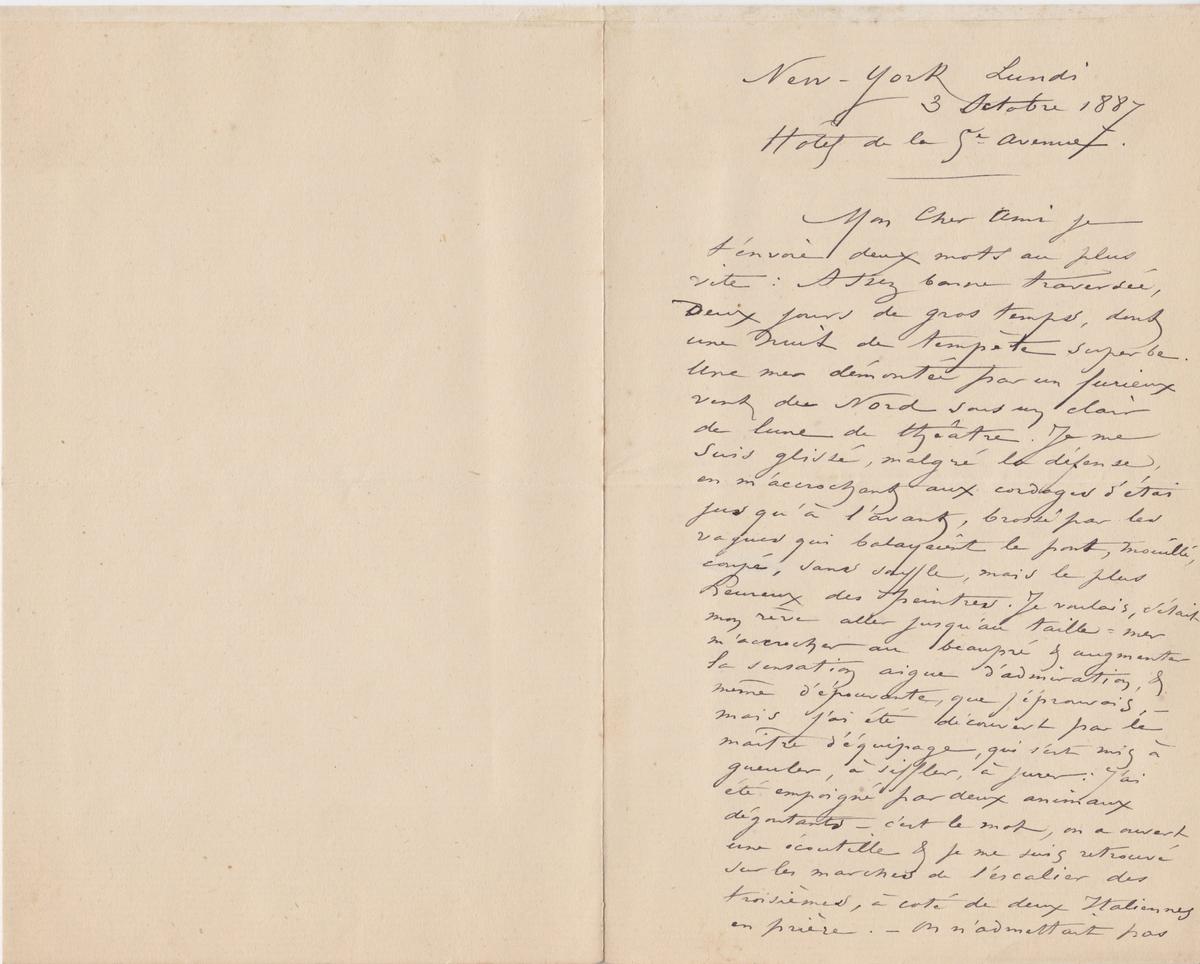 New-York Lundi
3 Octobre 1887
Hôtel de la 5e avenue.
Mon Cher Ami je
t'envoie deux mots au plus
vite : Assez bonne traversée,
Deux jours de gros temps, dont
une nuit de tempête superbe.
Une mer démontée par un furieux
vent du Nord sous un clair
de lune de théâtre. Je me
suis glissé, malgré la défense,
en m'accrochant aux cordages d'étai
jusqu'à l'avant, brossé par les
vagues qui balayaient le pont, mouillé,
coupé, sans souffle, mais le plus
heureux des peintres. Je voulais, c'était
mon rêve aller jusqu'au taille-mer
m'accrocher au beaupré & augmenter
la sensation aigue d'admiration, &
même d'épouvante, que j'éprouvais, –
mais j'ai été découvert par le
maître d'équipage, qui s'est mis à
gueuler, à siffler, à jurer : J'ai
été empoigné par deux animaux
dégoutants – c'est le mot, on a ouvert
une écoutille & je me suis retrouvé
sur les marches de l'escalier des
troisièmes, à coté de deux Italiennes
en prière. – On n'admettait pas